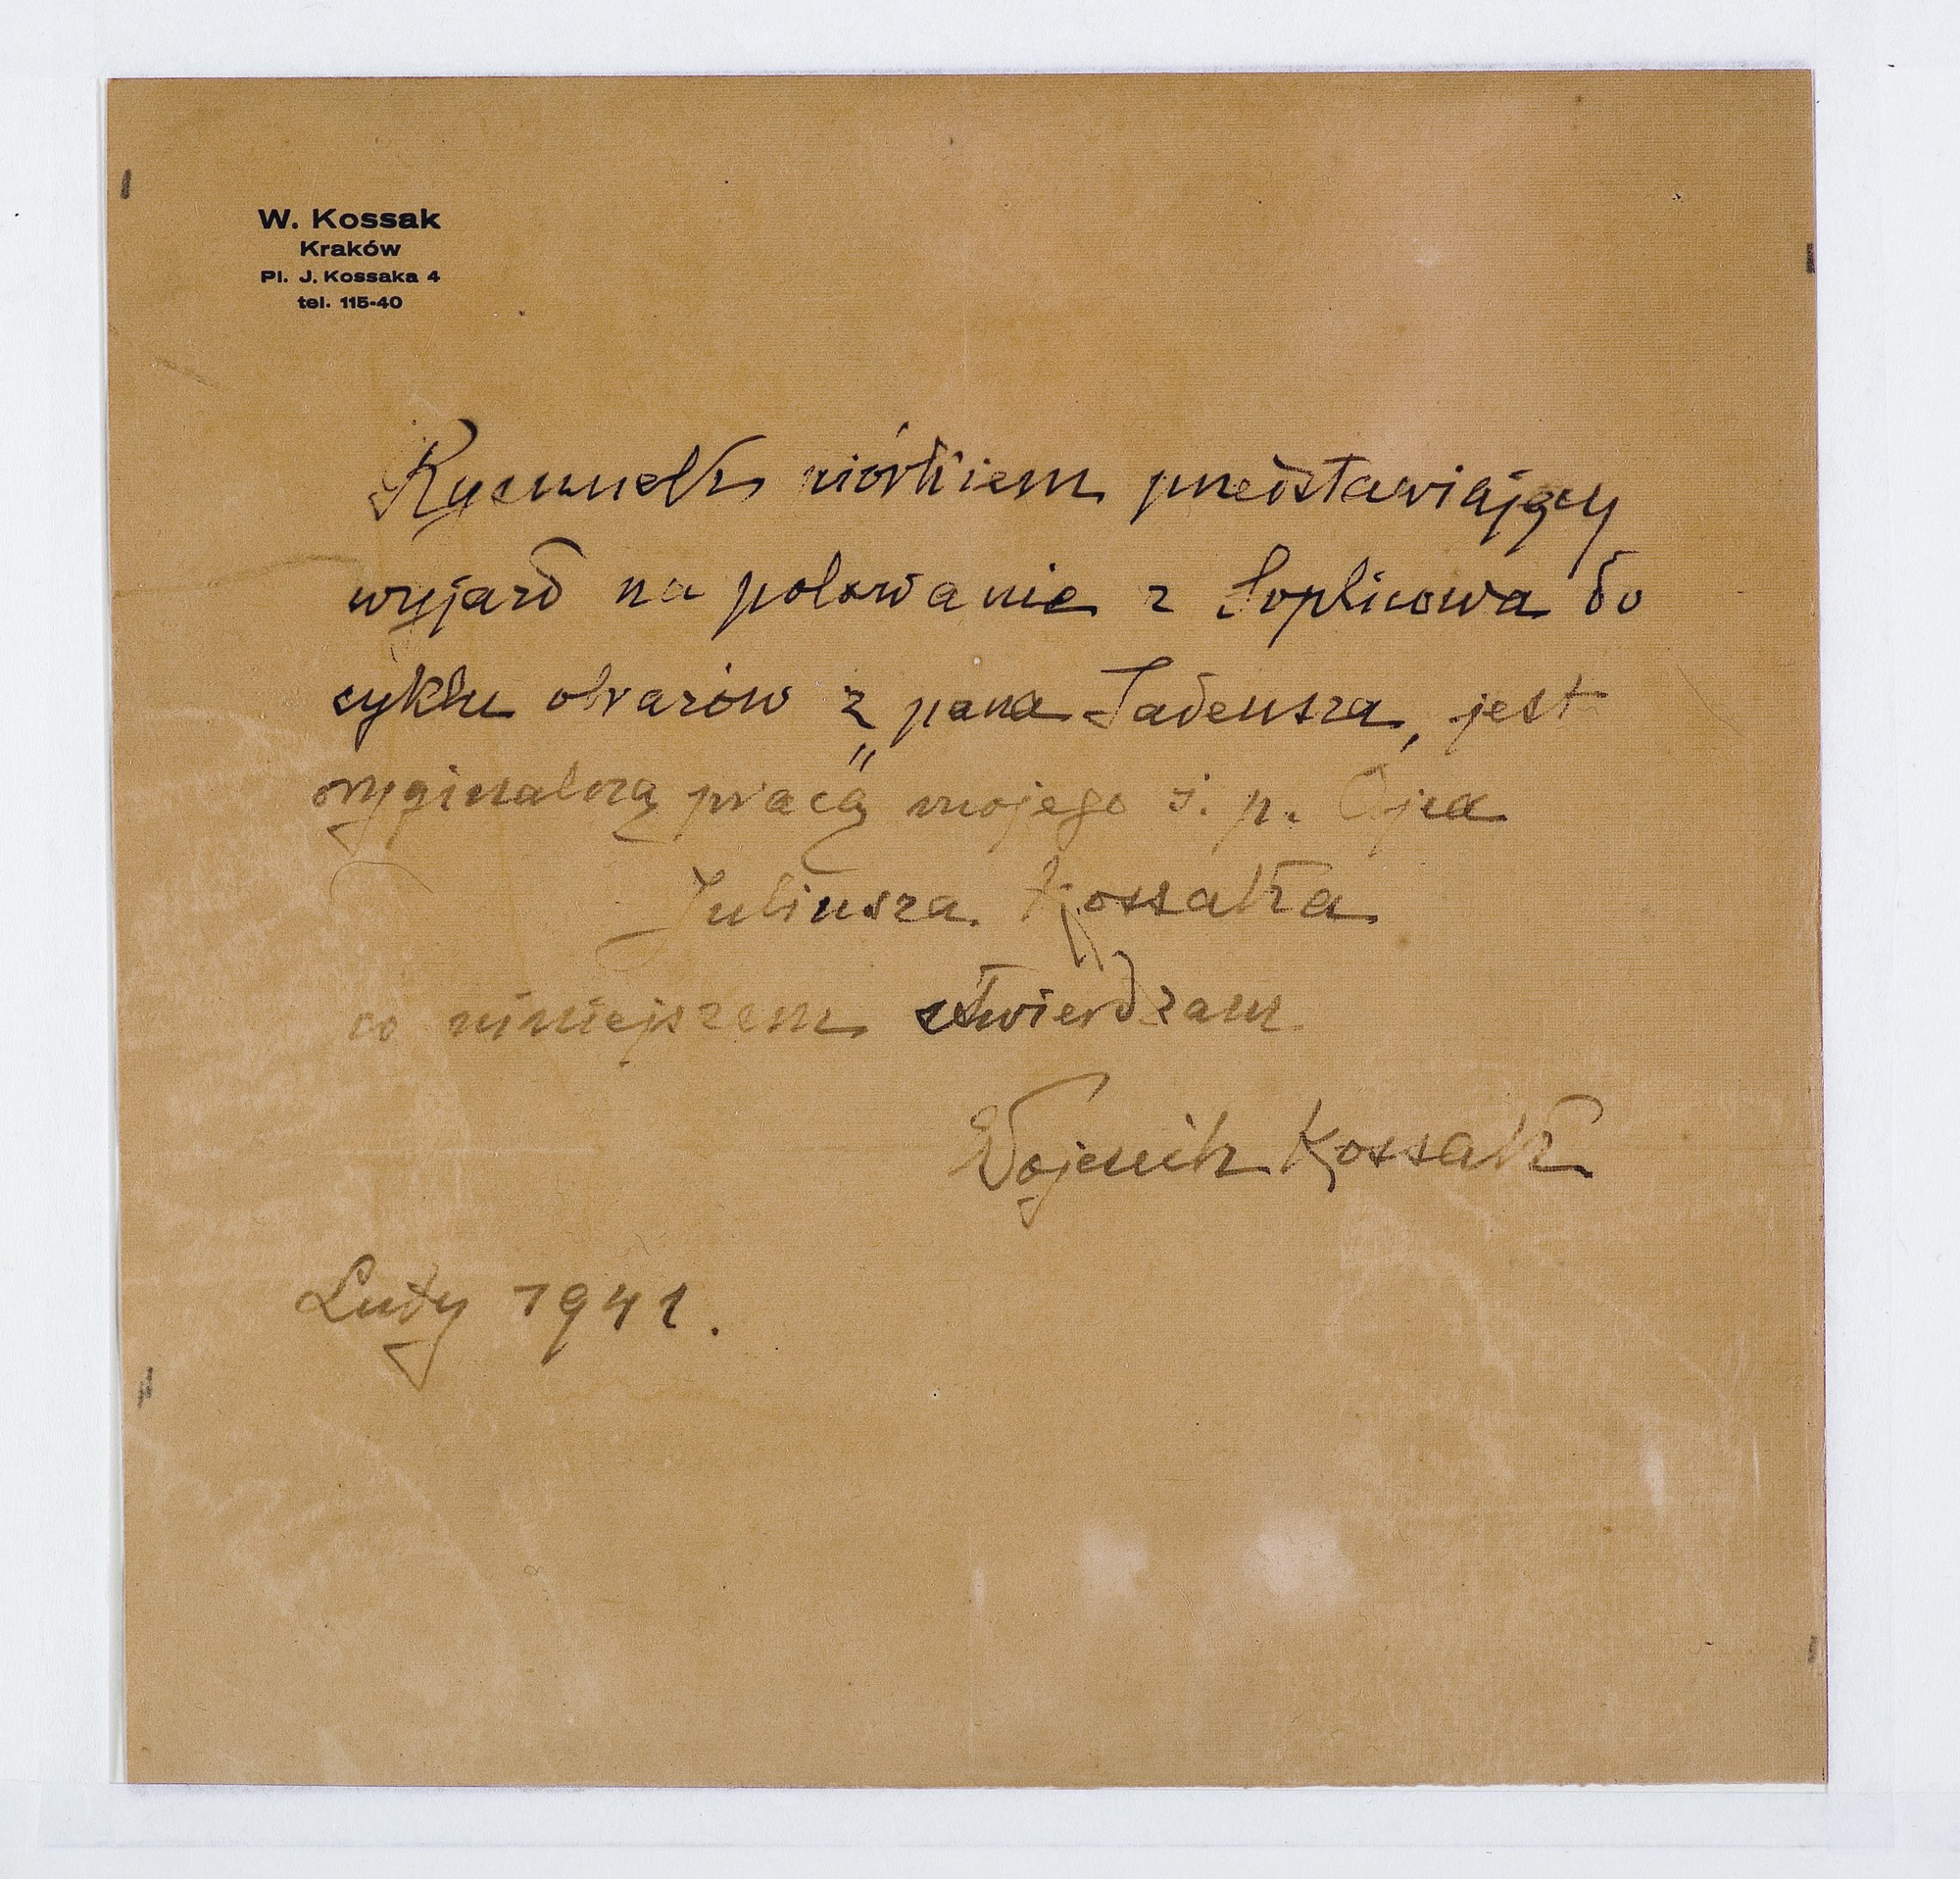 W. Kossak
Kraków
Pl. J. Kossaka 4
tel. 115-40
Rysunek piórkiem przedstawiający
wyjazd na polowanie z Soplicowa do
cyklu obrazów z „pana Tadeusza, jest
oryginalną pracą mojego ś. p. Ojca
Juliusza Kossaka
co niniejszem stwierdzam
Wojciech Kossak
Luty 1941.